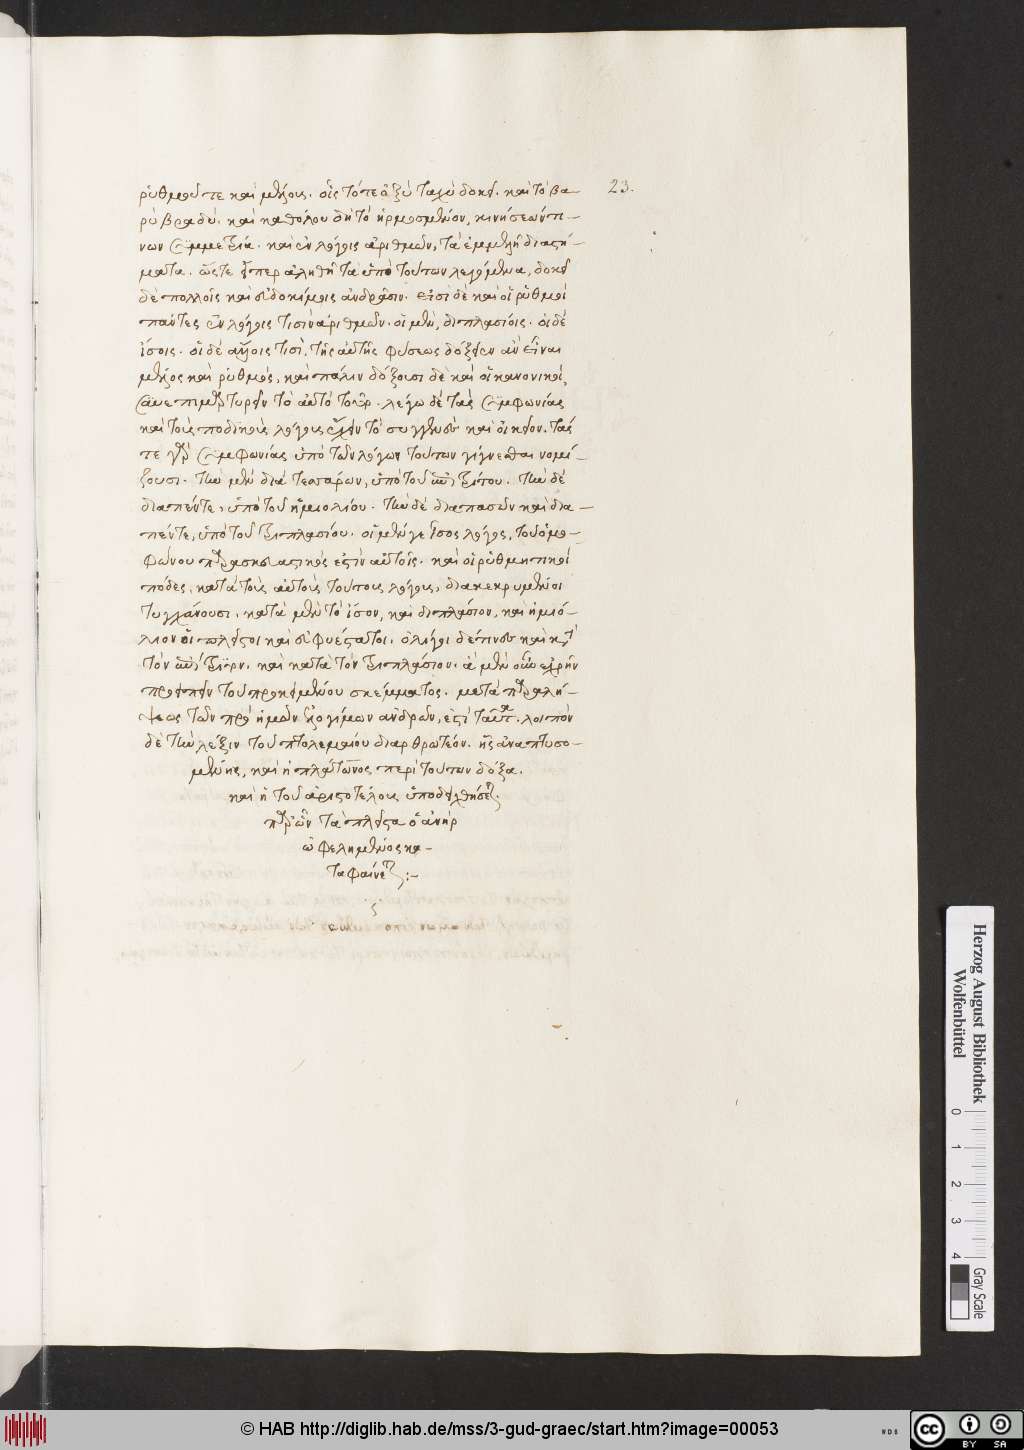 ῥυθμοῦ τε καὶ μέλους. οἷς τό τε ὀξὺ ταχὺ δοκεῖ. καὶ τὸ βα-
ρὺ βραδύ. καὶ καθόλου δὴ τὸ ἡρμοσμένον, κινήσεών τι-
νων συμμετρία. καὶ ἐν λόγοις ἀριθμῶν, τὰ ἐμμελῆ διαστή-
ματα. ὥστε εἴπερ ἀληθῆ τὰ ὑπὸ τούτων λεγόμενα, δοκεῖ
δὲ πολλοῖς καὶ εὐδοκίμοις ἀνδράσιν. εἰσὶ δὲ καὶ οἱ ῥυθμοὶ
πάντες ἐν λόγοις τισὶν ἀριθμῶν. οἱ μὲν, διπλασίοις. οἱ δὲ
ἴσοις. οἱ δὲ ἄλλοις τισὶ, τῆς αὐτῆς φύσεως δόξειεν ἂν εἶναι
μέλος καὶ ῥυθμός, καὶ πάλιν δόξουσι δὲ καὶ οἱ κανονικοὶ,
συνεπιμαρτυρεῖν τὸ αὐτὸ τοῦτο. λέγω δὲ τὰς συμφωνίας
καὶ τοὺς ποδικοὺς λόγους ἔχειν τὸ συγγενὲς καὶ οἰκεῖον. τάς
τε γὰρ συμφωνίας ὑπὸ τῶν λόγων τούτων γίγνεσθαι νομί-
ζουσι. τὴν μὲν διὰ τεσσάρων, ὑπὸ τοῦ ἐπιτρίτου. τὴν δὲ
διαπέντε, ὑπὸ τοῦ ἡμιολίου. τὴν δὲ διαπασῶν καὶ δια-
πέντε, ὑπὸ τοῦ τριπλασίου. οἱ μὲν γε ἴσος λόγος, τοῦ ὁμο-
φώνου παρασκευαστικός ἐστιν αὐτοῖς. καὶ οἱ ῥυθμητικοὶ
πόδες, κατὰ τοὺς αὐτοὺς τούτους λόγους, διακεκριμένοι
τυγχάνουσι. κατὰ μὲν τὸ ἴσον, καὶ διπλάσιον, καὶ ἡμιό-
λιον οἱ πλεῖστοι καὶ εὐφυέστατοι. ὀλίγοι δέ τινες καὶ κατὰ
τὸν ἐπίτριτον. καὶ κατὰ τὸν τριπλάσιον. ἃ μὲν οὖν ἐχρῆν
προειπεῖν τοῦ προκειμένου σκέμματος. μετὰ παραλή-
ψεως τῶν πρὸ ἡμῶν ἐλλογίμων ἀνδρῶν, ἐστὶ ταῦτα. λοιπὸν
δὲ τὴν λέξιν τοῦ πτολεμαίου διαρθρωτέον. ἧς ἀναπτυσσο-
μένης, καὶ ἡ πλάτωνος περὶ τούτων δόξα.
καὶ ἡ τοῦ ἀριστοτέλους ὑποδειχθήσεται.
παρ' ὧν τὰ πλεῖστα ὁ ἀνὴρ
ὠφελημένος κα-
ταφαίνεται :-
23.
Herzog August Bibliothek
Wolfenbüttel
0 1 2 3 4
Gray Scale
© HAB http://diglib.hab.de/mss/3-gud-graec/start.htm?image=00053
cc BY SA